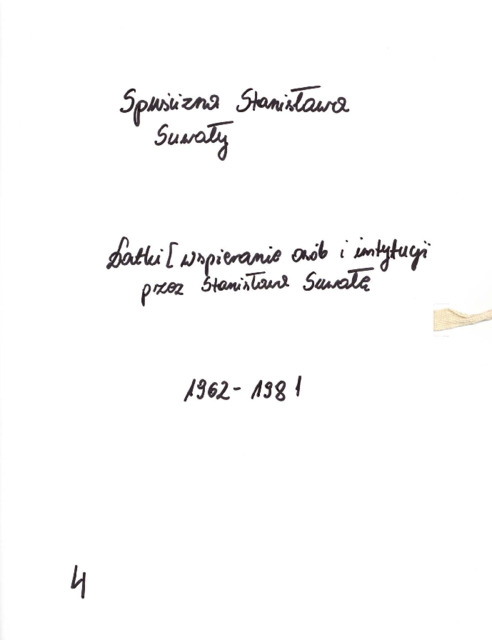 Spuścizna Stanisława
Suwały
Datki [wspieranie osób i instytucji
przez Stanisława Suwałę
1962-1981
4